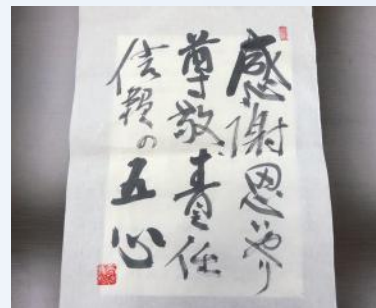 感謝思いやり
尊敬責任
信頼の五心